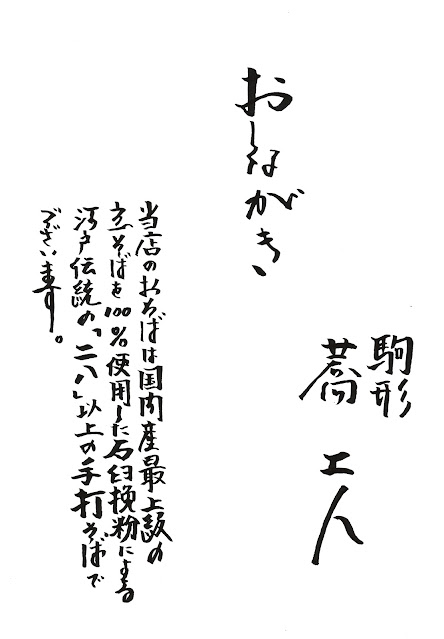 駒形
蕎上人
おしながき
当店のおそばは国内産最上級の
玄そばを100%使用した石臼挽粉による
江戸伝統の「二八」以上の手打そばで
ございます。